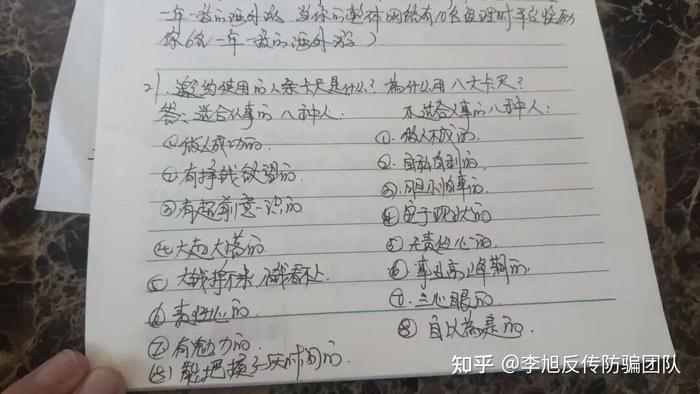 一年一次的海外游，当你的整体网络有10名经理时平台奖励
你6名一年一次的海外游）
2）.邀约使用的八条卡尺是什么？为什么用八大卡尺？
答：适合从事的八种人： 不适合从事的八种人：
①做人成功的. ①.做人不成的.
②有挣钱欲望的. ②.自私自利的
③有超前意识的 ③.胆小怕事的
④大起大落的. ④安于现状的
⑤大钱挣不来小钱看不上 ⑤无责任心的.
⑥责任心的 ⑥事业高峰期的.
⑦有魅力的. ⑦.三心眼的.
⑧能把握3-5天时间的. ⑧自以为是的.
知乎 @李旭反传防骗团队